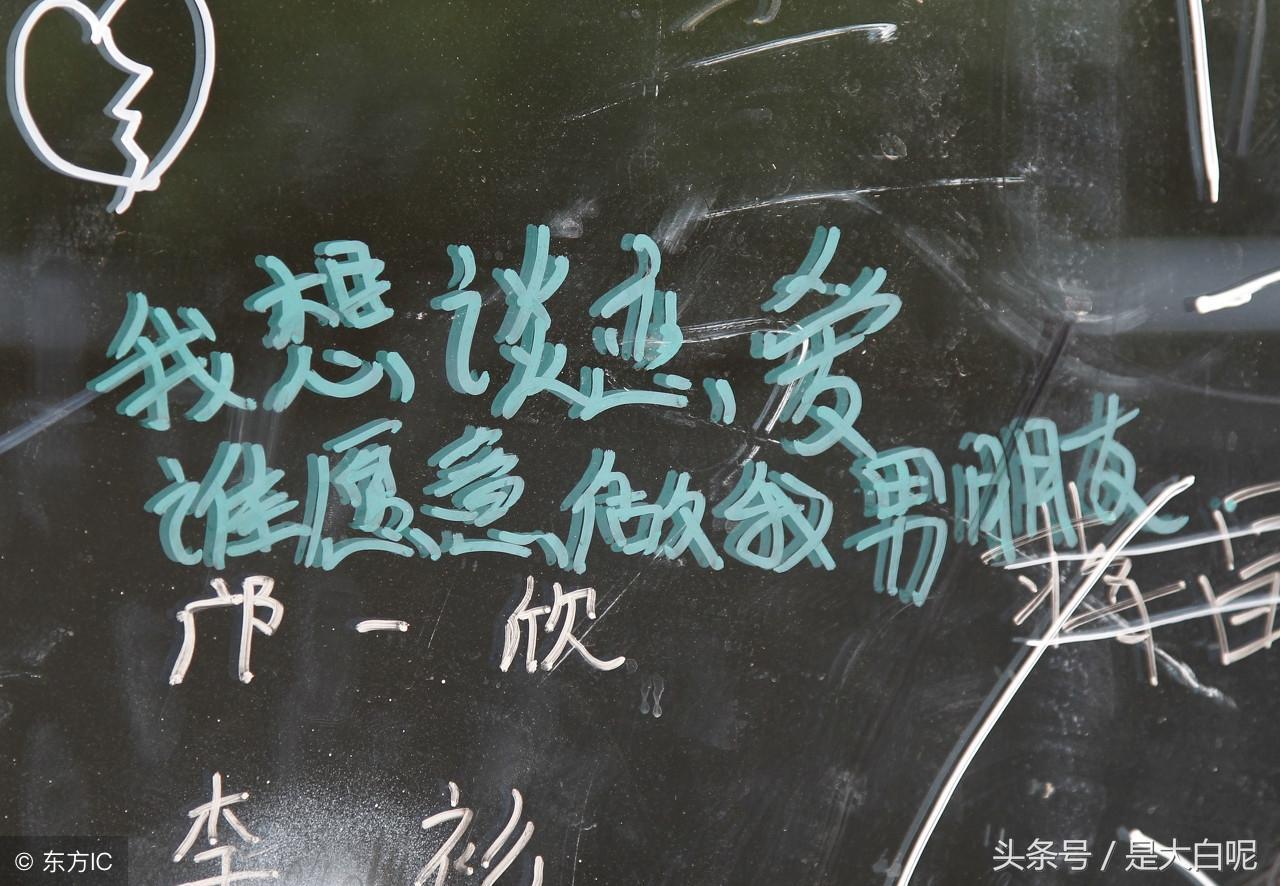 我想谈恋爱
谁愿意做我男朋友
邝一欣
李衫
© 东方IC
头条号 / 是大白呢